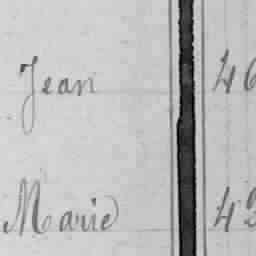 Jean 46
Marie 43